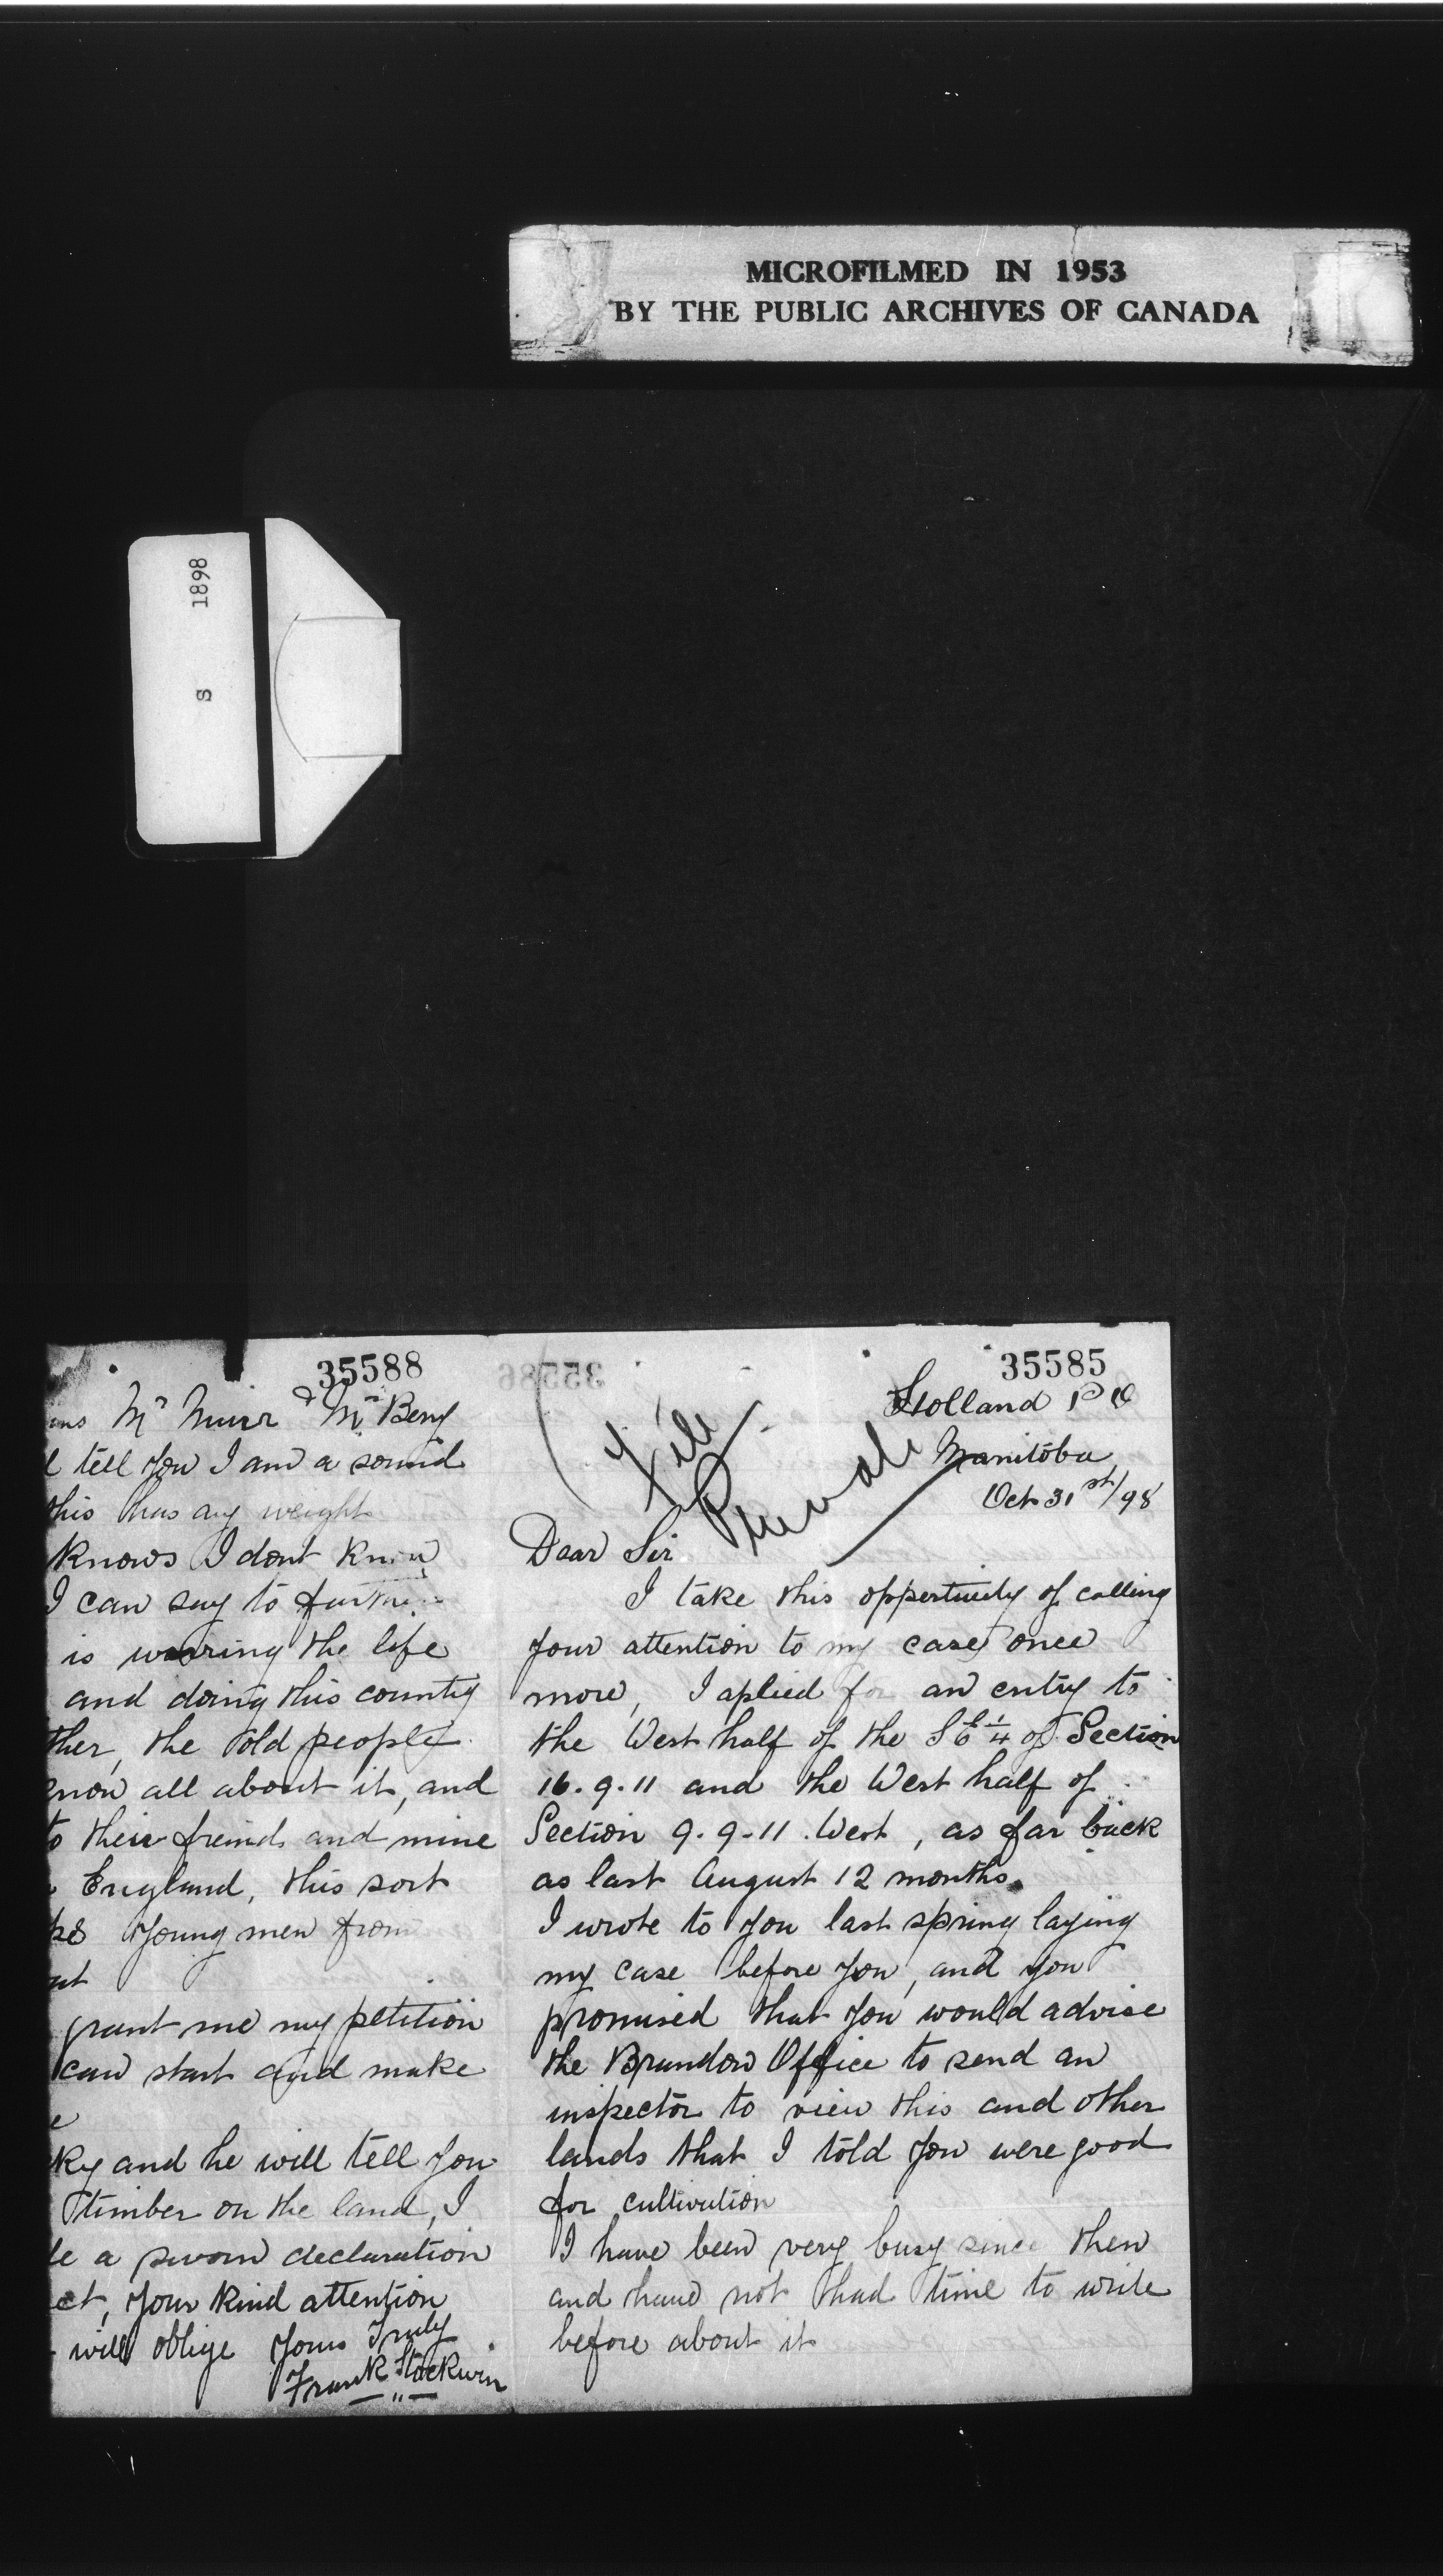 MICROFILMED IN 1953
BY THE PUBLIC ARCHIVES OF CANADA
S 1898
35588
Mr Muir & Mr Beny
tell you I am a sound
this has any weight
knows I dont know
I can say to
is wearing the life
and doing this country
ther, the old people
know all about it, and
to their freinds and mine
England, this sort
young men from
grant me my petition
can start and make
ky and he will tell you
timber on the land, I
a sworn declaration
ct, your kind attention
will oblige yours Truly
Frank Stockwin
35586
35585
Holland P O
Manitoba
Oct 31st/98
File
Private
Dear Sir
I take this oppertuidy of calling
your attention to my case once
more, I aplied for an entry to
the West half of the S E 1/4 of Section
16.9.11 and the West half of
Section 9.9.11. West, as far back
as last August 12 months.
I wrote to you last spring laying
my case before you, and you
promised that you would advise
the Brandon Office to send an
inspector to view this and other
lands that I told you were good
for cultivation
I have been very busy since then
and have not had time to write
before about it